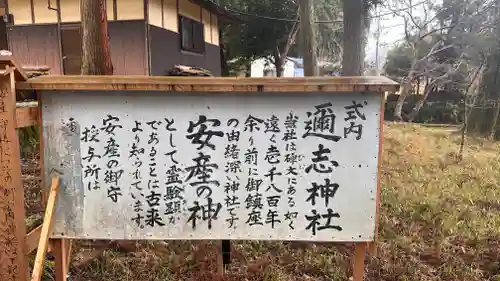 式内
彌志神社
当社は碑文にある如く
遠く壱千八百年
余り前に御鎮座
の由緒深い神社です
安産の神
として霊験
であり 古来
よく知られています
安産の御守
授与所は